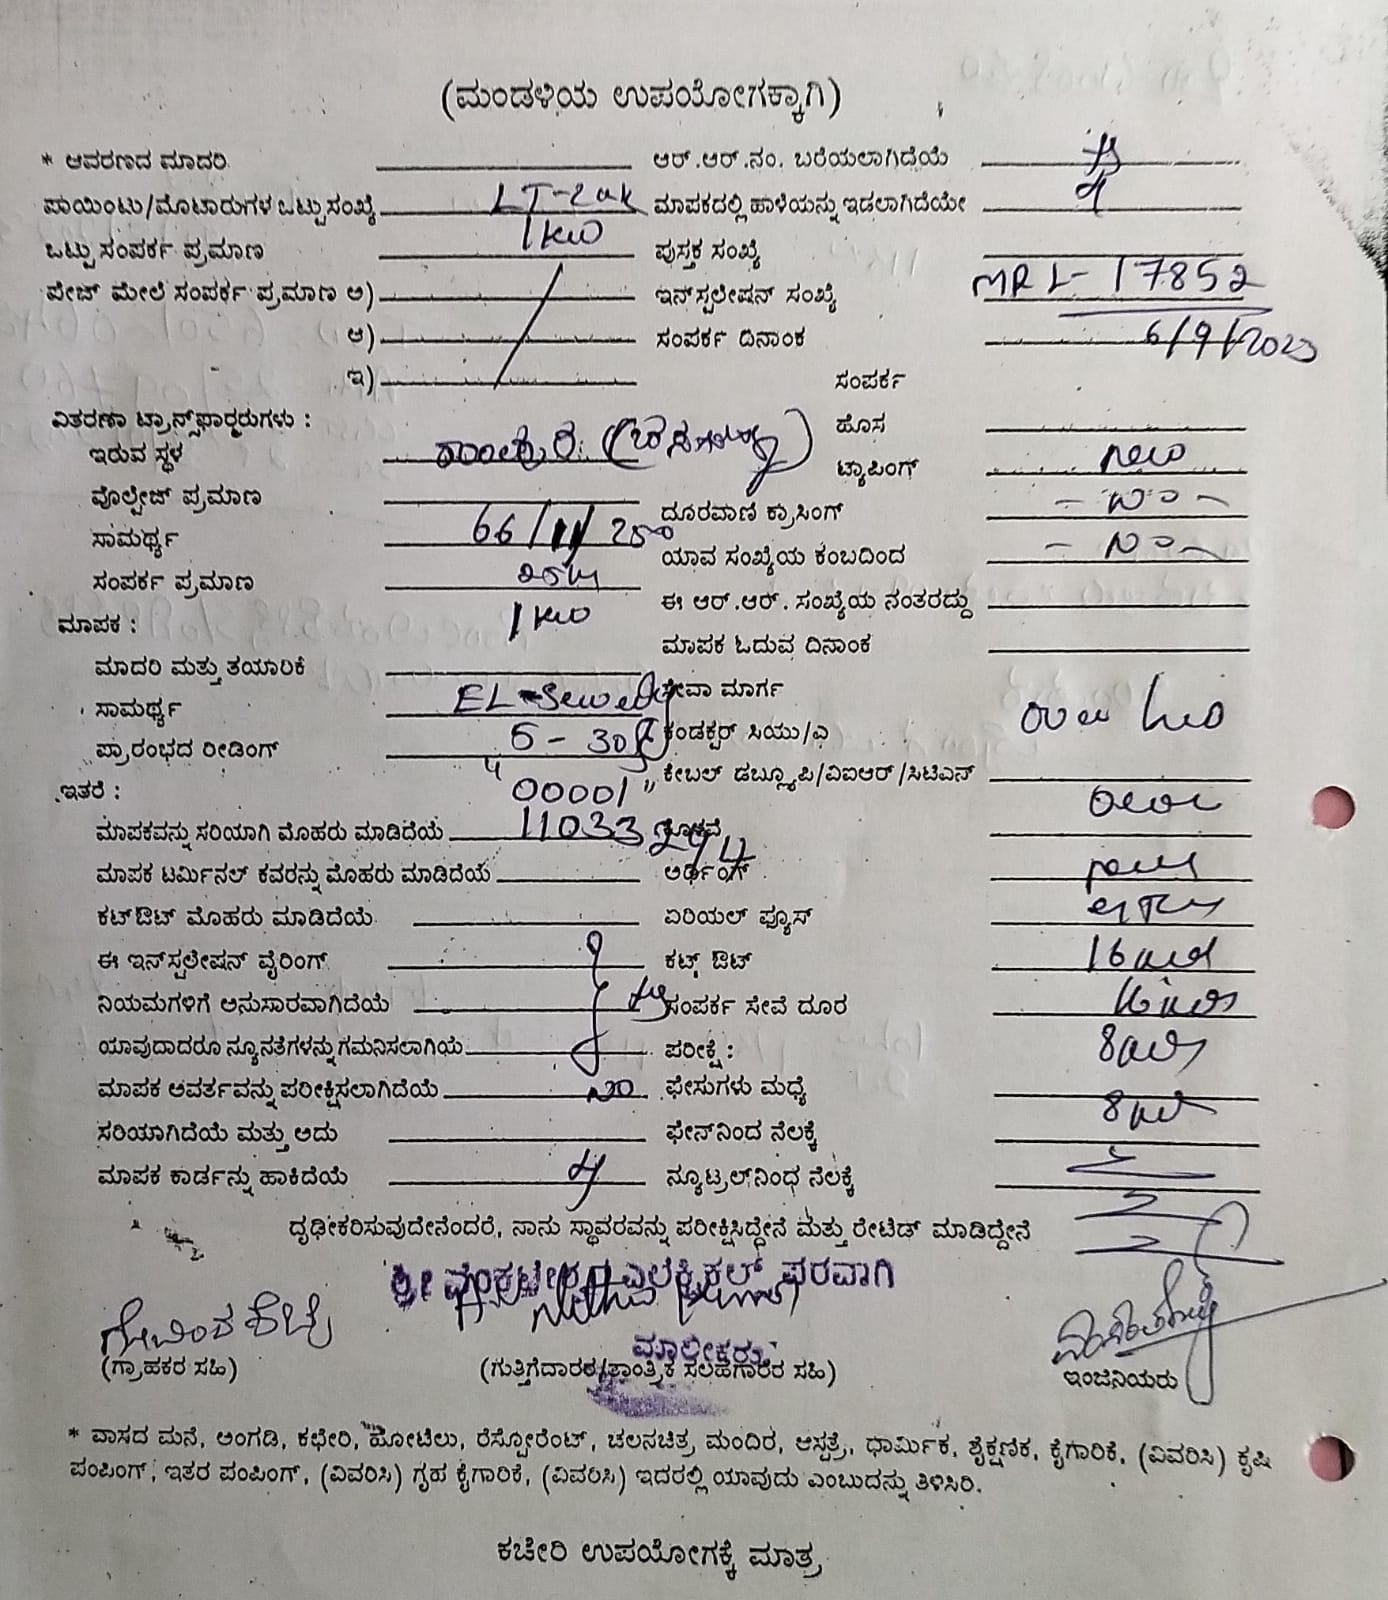 (ಮಂಡಳಿಯ ಉಪಯೋಗಕ್ಕಾಗಿ)
* ಆವರಣದ ಮಾದರಿ ಆರ್.ಆರ್.ನಂ. ಬರೆಯಲಾಗಿದೆಯೆ
ಪಾಯಿಂಟು/ಮೊಟಾರುಗಳ ಒಟ್ಟು ಸಂಖ್ಯೆ LT-2 ಮಾಪಕದಲ್ಲಿ ಹಾಳೆಯನ್ನು ಇಡಲಾಗಿದೆಯೇ
ಒಟ್ಟು ಸಂಪರ್ಕ ಪ್ರಮಾಣ 1 KW ಪುಸ್ತಕ ಸಂಖ್ಯೆ
ಪೇಜ್ ಮೇಲೆ ಸಂಪರ್ಕ ಪ್ರಮಾಣ ಅ) ಇನ್‌ಸ್ಟಲೇಷನ್ ಸಂಖ್ಯೆ MRL-17852
ಆ) ಸಂಪರ್ಕ ದಿನಾಂಕ 6/9/2023
ಇ) ಸಂಪರ್ಕ
ವಿತರಣಾ ಟ್ರಾನ್ಸ್‌ಫಾರ್ಮರುಗಳು : ಹೊಸ
ಇರುವ ಸ್ಥಳ ಟ್ಯಾಪಿಂಗ್ new
ವೊಲ್ಟೇಜ್ ಪ್ರಮಾಣ ದೂರವಾಣಿ ಕ್ರಾಸಿಂಗ್ - no -
ಸಾಮರ್ಥ್ಯ 66/11/250 ಯಾವ ಸಂಖ್ಯೆಯ ಕಂಬದಿಂದ - No -
ಸಂಪರ್ಕ ಪ್ರಮಾಣ ಈ ಆರ್.ಆರ್. ಸಂಖ್ಯೆಯ ನಂತರದ್ದು
ಮಾಪಕ : 1 KW ಮಾಪಕ ಓದುವ ದಿನಾಂಕ
ಮಾದರಿ ಮತ್ತು ತಯಾರಿಕೆ ಸೇವಾ ಮಾರ್ಗ
ಸಾಮರ್ಥ್ಯ EL-Sewedy ಕಂಡಕ್ಟರ್ ಸಿಯು/ಎ
ಪ್ರಾರಂಭದ ರೀಡಿಂಗ್ 5-30 ಕೇಬಲ್ ಡಬ್ಲ್ಯೂಪಿ/ವಿಐಆರ್/ಸಿಟಿಎಸ್
ಇತರೆ : "00001"
ಮಾಪಕವನ್ನು ಸರಿಯಾಗಿ ಮೊಹರು ಮಾಡಿದೆಯೆ 11033294
ಮಾಪಕ ಟರ್ಮಿನಲ್ ಕವರನ್ನು ಮೊಹರು ಮಾಡಿದೆಯೆ ಅರ್ಥಿಂಗ್
ಕಟ್‌ಔಟ್ ಮೊಹರು ಮಾಡಿದೆಯೆ ಏರಿಯಲ್ ಫ್ಯೂಸ್
ಈ ಇನ್‌ಸ್ಟಲೇಷನ್ ವೈರಿಂಗ್ ಕಟ್ಟ್ ಔಟ್
ನಿಯಮಗಳಿಗೆ ಅನುಸಾರವಾಗಿದೆಯೆ ಸಂಪರ್ಕ ಸೇವೆ ದೂರ
ಯಾವುದಾದರೂ ನ್ಯೂನತೆಗಳನ್ನು ಗಮನಿಸಲಾಗಿಯೆ ಪರೀಕ್ಷೆ :
ಮಾಪಕ ಆವರ್ತವನ್ನು ಪರೀಕ್ಷಿಸಲಾಗಿದೆಯೆ no ಫೇಸುಗಳು ಮಧ್ಯೆ
ಸರಿಯಾಗಿದೆಯೆ ಮತ್ತು ಅದು ಫೇಸ್‌ನಿಂದ ನೆಲಕ್ಕೆ
ಮಾಪಕ ಕಾರ್ಡನ್ನು ಹಾಕಿದೆಯೆ ನ್ಯೂಟ್ರಲ್‌ನಿಂಧ ನೆಲಕ್ಕೆ
ದೃಢೀಕರಿಸುವುದೇನೆಂದರೆ, ನಾನು ಸ್ಥಾವರವನ್ನು ಪರೀಕ್ಷಿಸಿದ್ದೇನೆ ಮತ್ತು ರೇಟೆಡ್ ಮಾಡಿದ್ದೇನೆ
ಶ್ರೀ ವೆಂಕಟೇಶ್ವರ ಎಲೆಕ್ಟ್ರಿಕಲ್ಸ್ ಪರವಾಗಿ
ಮಾಲೀಕರು
(ಗ್ರಾಹಕರ ಸಹಿ) (ಗುತ್ತಿಗೆದಾರರ/ತಾಂತ್ರಿಕ ಸಲಹೆಗಾರರ ಸಹಿ) ಇಂಜಿನಿಯರು
* ವಾಸದ ಮನೆ, ಅಂಗಡಿ, ಕಛೇರಿ, ಹೋಟೆಲು, ರೆಸ್ಟೋರೆಂಟ್, ಚಲನಚಿತ್ರ ಮಂದಿರ, ಆಸ್ಪತ್ರೆ, ಧಾರ್ಮಿಕ, ಶೈಕ್ಷಣಿಕ, ಕೈಗಾರಿಕೆ, (ವಿವರಿಸಿ) ಕೃಷಿ
ಪಂಪಿಂಗ್, ಇತರ ಪಂಪಿಂಗ್, (ವಿವರಿಸಿ) ಗೃಹ ಕೈಗಾರಿಕೆ, (ವಿವರಿಸಿ) ಇದರಲ್ಲಿ ಯಾವುದು ಎಂಬುದನ್ನು ತಿಳಿಸಿರಿ.
ಕಚೇರಿ ಉಪಯೋಗಕ್ಕೆ ಮಾತ್ರ